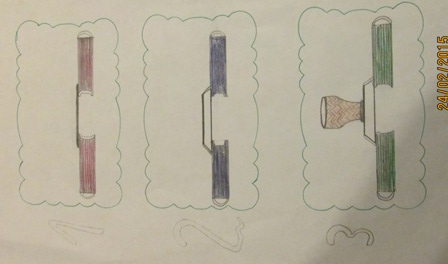 1
2
3
24/02/2015